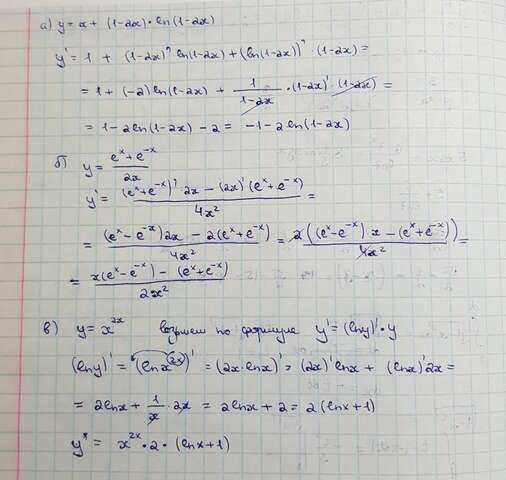 а) y = x + (1-2x)·ln(1-2x)
y' = 1 + (1-2x)' ln(1-2x) + (ln(1-2x))' · (1-2x) =
= 1 + (-2) ln(1-2x) + 1/(1-2x) · (1-2x)' · (1-2x) =
= 1 - 2 ln(1-2x) - 2 = -1 - 2 ln(1-2x)
б) y = (eˣ + e⁻ˣ)/2x
y' = ((eˣ + e⁻ˣ)' · 2x - (2x)' (eˣ + e⁻ˣ))/4x² =
= ((eˣ - e⁻ˣ)2x - 2(eˣ + e⁻ˣ))/4x² = 2((eˣ - e⁻ˣ)·x - (eˣ + e⁻ˣ))/4x² =
= (x(eˣ - e⁻ˣ) - (eˣ + e⁻ˣ))/2x²
в) y = x²ˣ возьмем по формуле y' = (ln y)' · y
(ln y)' = (ln x²ˣ)' = (2x · ln x)' = (2x)' ln x + (ln x)' 2x =
= 2 ln x + 1/x · 2x = 2 ln x + 2 = 2 (ln x + 1)
y' = x²ˣ · 2 · (ln x + 1)